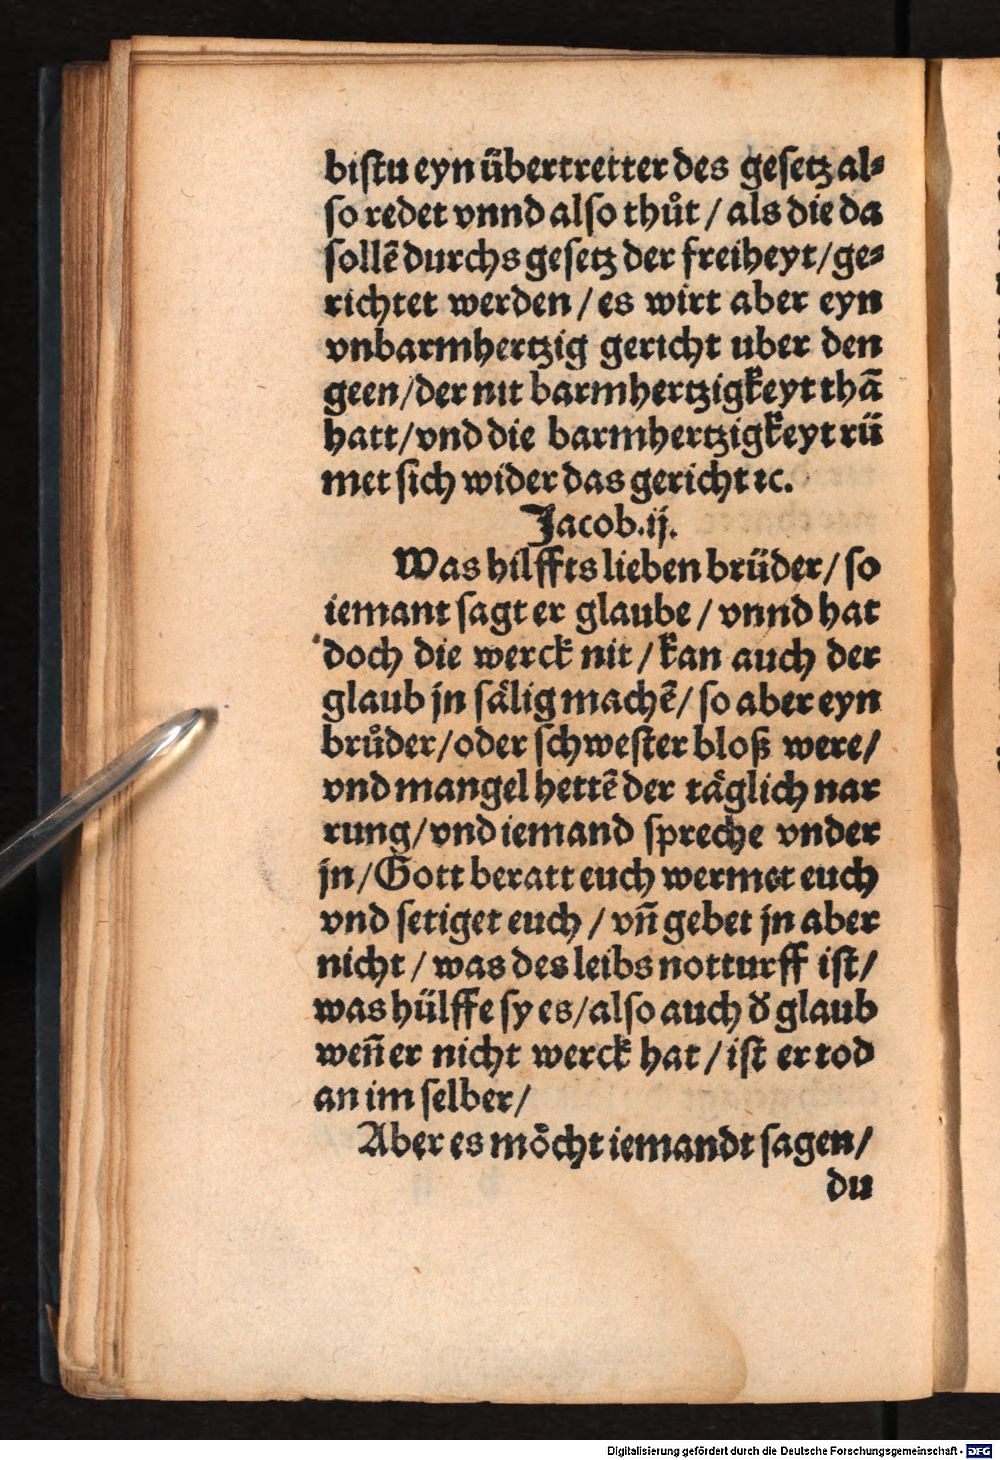 biſtu eyn übertretter des geſetz al⸗
ſo redet vnnd alſo thůt / als die da
ſollē durchs geſetz der freiheyt / ge⸗
richtet werden / es wirt aber eyn
vnbarmhertzig gericht uber den
geen / der nit barmhertzigkeyt thā
hatt / vnd die barmhertzigkeyt rü
met ſich wider das gericht ꝛc.
Jacob.ij.
Was hilffts lieben brüder / ſo
iemant ſagt er glaube / vnnd hat
doch die werck nit / kan auch der
glaub jn ſälig machē / ſo aber eyn
brůder / oder ſchweſter bloß were /
vnd mangel hettē der täglich nar
rung / vnd iemand ſpreche vnder
jn / Gott beratt euch wermet euch
vnd ſetiget euch / vn̄ gebet jn aber
nicht / was des leibs notturff iſt /
was hülffe ſy es / alſo auch d̕ glaub
wen̄ er nicht werck hat / iſt er tod
an im ſelber /
Aber es moͤcht iemandt ſagen /
du
Digitalisierung gefördert durch die Deutsche Forschungsgemeinschaft - DFG